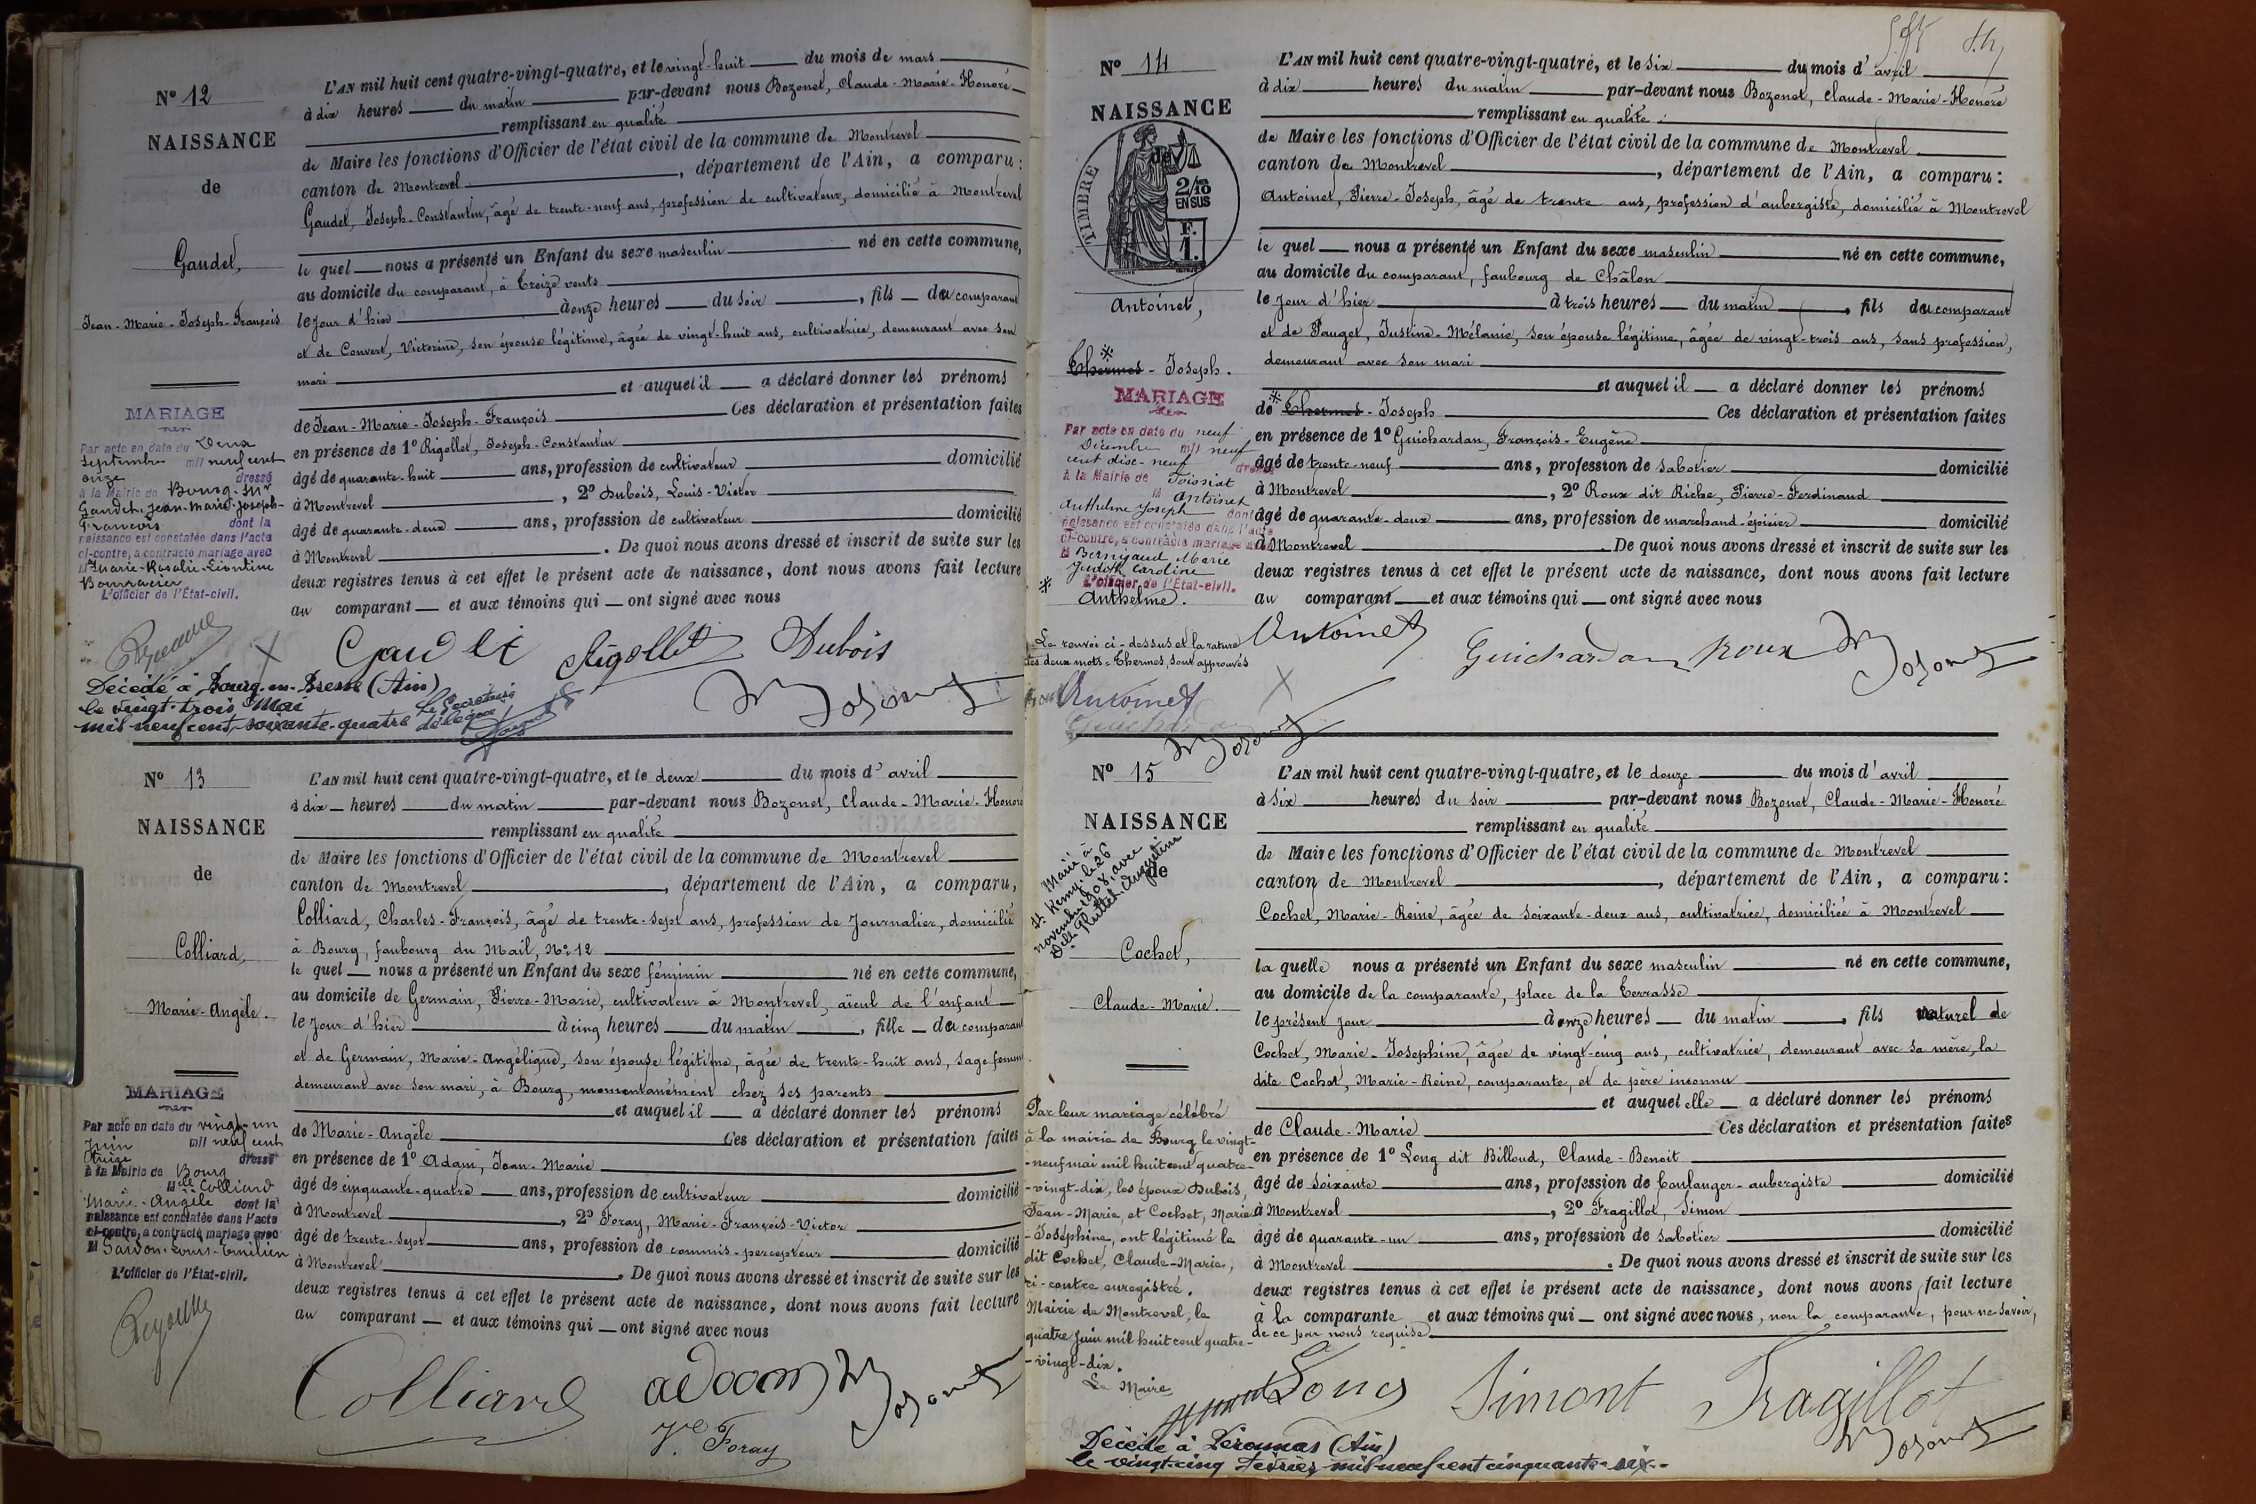 Nº 12
NAISSANCE
de
Gaudet,
Jean-Marie-Joseph-François
MARIAGE
Par acte en date du Deux
Septembre mil neuf cent
onze dressé
à la Mairie de Bourg. Mr
Gaudet, Jean-Marie-Joseph-
François dont la
naissance est constatée dans l'acte
ci-contre, a contracté mariage avec
Marie-Rosalie-Léontine
L'officier de l'État-civil.
Décédé à Bourg-en-Bresse (Ain)
le vingt-trois Mai
mil neuf cent soixante-quatre
Le Secrétaire
délégué
L'AN mil huit cent quatre-vingt-quatre, et le vingt-huit du mois de mars
à dix heures du matin par-devant nous Bozonet, Claude-Marie-Honoré
remplissant en qualité
de Maire les fonctions d'Officier de l'état civil de la commune de Montrevel
canton de Montrevel, département de l'Ain, a comparu:
Gaudet, Joseph-Constantin, âgé de trente-neuf ans, profession de cultivateur, domicilié à Montrevel
le quel nous a présenté un Enfant du sexe masculin né en cette commune,
au domicile du comparant, à Treize vents
le jour d'hier à onze heures du soir, fils du comparant
et de Convert, Victorine, son épouse légitime, âgée de vingt-huit ans, cultivatrice, demeurant avec son
mari
et auquel il a déclaré donner les prénoms
de Jean-Marie-Joseph-François Ces déclaration et présentation faites
en présence de 1º Rigollet, Joseph-Constantin
âgé de quarante-huit ans, profession de cultivateur domicilié
à Montrevel, 2º Dubois, Louis-Victor
âgé de quarante-deux ans, profession de cultivateur domicilié
à Montrevel. De quoi nous avons dressé et inscrit de suite sur les
deux registres tenus à cet effet le présent acte de naissance, dont nous avons fait lecture
au comparant et aux témoins qui ont signé avec nous
Gaudet Rigollet Dubois
Bozonet
Nº 13
NAISSANCE
de
Colliard,
Marie-Angèle.
MARIAGE
Par acte en date du vingt-un
Juin mil neuf cent
treize dressé
à la Mairie de Bourg
Melle Colliard
Marie-Angèle dont la
naissance est constatée dans l'acte
ci-contre, a contracté mariage avec
M Sardon-Louis-Emilien
L'officier de l'État-civil.
L'AN mil huit cent quatre-vingt-quatre, et le deux du mois d'avril
à dix heures du matin par-devant nous Bozonet, Claude-Marie-Honoré
remplissant en qualité
de Maire les fonctions d'Officier de l'état civil de la commune de Montrevel
canton de Montrevel, département de l'Ain, a comparu,
Colliard, Charles-François, âgé de trente-sept ans, profession de Journalier, domicilié
à Bourg, faubourg du Mail, Nº 12
le quel nous a présenté un Enfant du sexe féminin né en cette commune,
au domicile de Germain, Pierre-Marie, cultivateur à Montrevel, aïeul de l'enfant
le jour d'hier à cinq heures du matin, fille du comparant
et de Germain, Marie-Angélique, son épouse légitime, âgée de trente-huit ans, sage femme
demeurant avec son mari, à Bourg, momentanément chez ses parents
et auquel il a déclaré donner les prénoms
de Marie-Angèle Ces déclaration et présentation faites
en présence de 1º Adam, Jean-Marie
âgé de cinquante-quatre ans, profession de cultivateur domicilié
à Montrevel, 2º Foray, Marie-François-Victor
âgé de trente-sept ans, profession de commis-percepteur domicilié
à Montrevel. De quoi nous avons dressé et inscrit de suite sur les
deux registres tenus à cet effet le présent acte de naissance, dont nous avons fait lecture
au comparant et aux témoins qui ont signé avec nous
Colliard adam Bozonet
Foray
Nº 14
NAISSANCE
de
TIMBRE
2/10 EN SUS
F. 1.
Antoinet,
※ Thermes - Joseph.
MARIAGE
Par acte en date du neuf
Décembre mil neuf
cent dix-neuf dressé
à la Mairie de Foissiat
M Antoinet
Anthelme Joseph dont la
naissance est constatée dans l'acte
ci-contre, a contracté mariage avec
M Bernigaud Marie
Judith Caroline
L'officier de l'État-civil.
※ Anthelme.
Le renvoi ci-dessus et la rature
des deux mots = Thermes, sont approuvés
Antoinet
Bozonet
L'AN mil huit cent quatre-vingt-quatre, et le Six du mois d'avril
à dix heures du matin par-devant nous Bozonet, Claude-Marie-Honoré
remplissant en qualité
de Maire les fonctions d'Officier de l'état civil de la commune de Montrevel
canton de Montrevel, département de l'Ain, a comparu:
Antoinet, Pierre-Joseph, âgé de trente ans, profession d'aubergiste, domicilié à Montrevel
le quel nous a présenté un Enfant du sexe masculin né en cette commune,
au domicile du comparant, faubourg de Châlon
le jour d'hier à trois heures du matin, fils du comparant
et de Pauget, Justine-Mélanie, son épouse légitime, âgée de vingt-trois ans, sans profession,
demeurant avec son mari
et auquel il a déclaré donner les prénoms
de ※ Thermes - Joseph Ces déclaration et présentation faites
en présence de 1º Guichardan, François-Eugène
âgé de trente-neuf ans, profession de sabotier domicilié
à Montrevel, 2º Roux dit Riche, Pierre-Ferdinand
âgé de quarante-deux ans, profession de marchand-épicier domicilié
à Montrevel. De quoi nous avons dressé et inscrit de suite sur les
deux registres tenus à cet effet le présent acte de naissance, dont nous avons fait lecture
au comparant et aux témoins qui ont signé avec nous
Antoinet Guichardan Roux Bozonet
Nº 15
NAISSANCE
de
Marié à
St. Remy, le 26
novembre 1908, avec
Cochet,
Claude-Marie.
Par leur mariage célébré
à la mairie de Bourg le vingt-
-neuf mai mil huit cent quatre-
-vingt-dix, les époux Dubois,
Jean-Marie, et Cochet, Marie
-Joséphine, ont légitimé le
dit Cochet, Claude-Marie,
ci-contre enregistré.
Mairie de Montrevel, le
quatre Juin mil huit cent quatre-
-vingt-dix.
Le Maire
L'AN mil huit cent quatre-vingt-quatre, et le douze du mois d'avril
à six heures du soir par-devant nous Bozonet, Claude-Marie-Honoré
remplissant en qualité
de Maire les fonctions d'Officier de l'état civil de la commune de Montrevel
canton de Montrevel, département de l'Ain, a comparu:
Cochet, Marie-Reine, âgée de soixante-deux ans, cultivatrice, domiciliée à Montrevel
la quelle nous a présenté un Enfant du sexe masculin né en cette commune,
au domicile de la comparante, place de la Terrasse
le présent jour à onze heures du matin, fils naturel de
Cochet, Marie-Josephine, âgée de vingt-cinq ans, cultivatrice, demeurant avec sa mère, la
dite Cochet, Marie-Reine, comparante, et de père inconnu
et auquel elle a déclaré donner les prénoms
de Claude-Marie Ces déclaration et présentation faites
en présence de 1º Long dit Billoud, Claude-Benoit
âgé de soixante ans, profession de boulanger-aubergiste domicilié
à Montrevel, 2º Fragillot, Simon
âgé de quarante-un ans, profession de sabotier domicilié
à Montrevel. De quoi nous avons dressé et inscrit de suite sur les
deux registres tenus à cet effet le présent acte de naissance, dont nous avons fait lecture
à la comparante et aux témoins qui ont signé avec nous, non la comparante, pour ne savoir,
de ce par nous requise
Long Simont Fragillot
Bozonet
Décédé à Péronnas (Ain)
le vingt-cinq Février mil neuf cent cinquante-six.